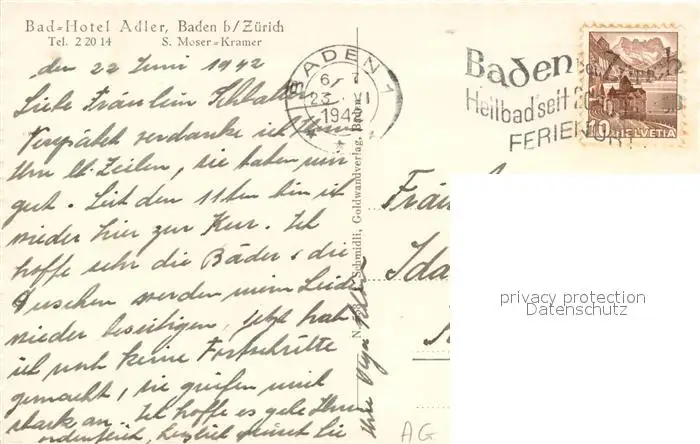 Bad-Hotel Adler, Baden b/Zürich
Tel. 2 20 14 S. Moser-Kramer
den 22 Juni 1942
Liebe Fräulein
Verspätet verdanke ich Ihnen
Ihre lb. Zeilen, sie haben mir
gut. Seit dem 11ten bin ich
wieder hier zur Kur. Ich
hoffe sehr die Bäder & die
Duschen werden mein Leide
wieder beseitigen, jetzt hab
ich noch keine Fortschritte
gemacht, sie greifen mich
stark an. Ich hoffe es gehe Ihnen
ordentlich, herzlich grüsst Sie
Ihre Olga
BADEN 1
23. VI
1942
Baden b. Zürich
Heilbad seit
FERIENORT
10 HELVETIA
Schmidli, Goldwandverlag, Baden
Fräul
Ida
privacy protection
Datenschutz
AG